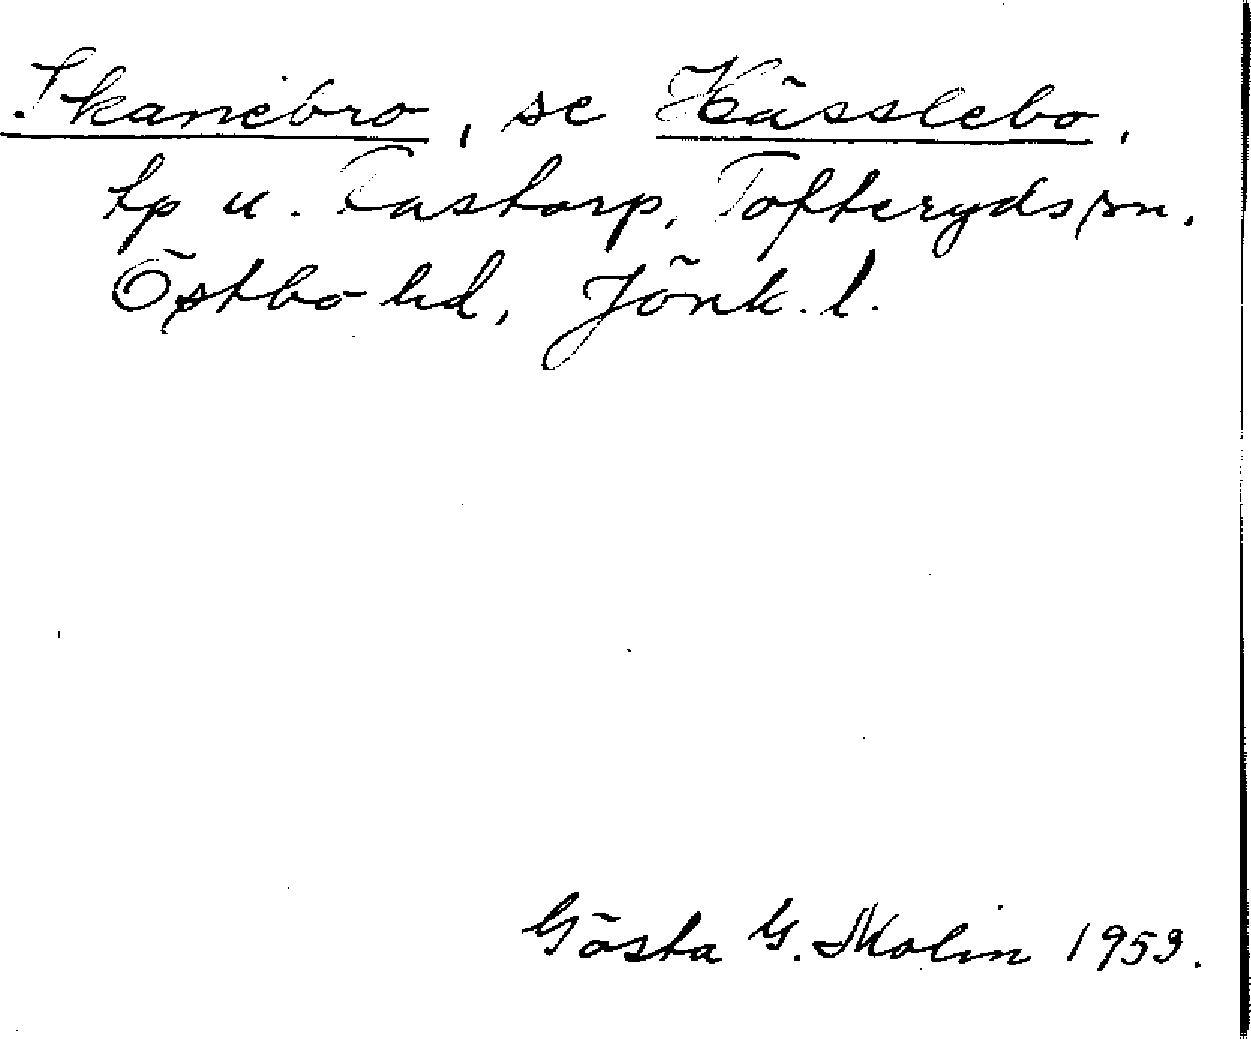 Skanebro, se Hässlebo,
tp u. Fastarp, Tofteryds sn.
Östbo hd, Jönk. l.
Gösta G. Molin 1953.